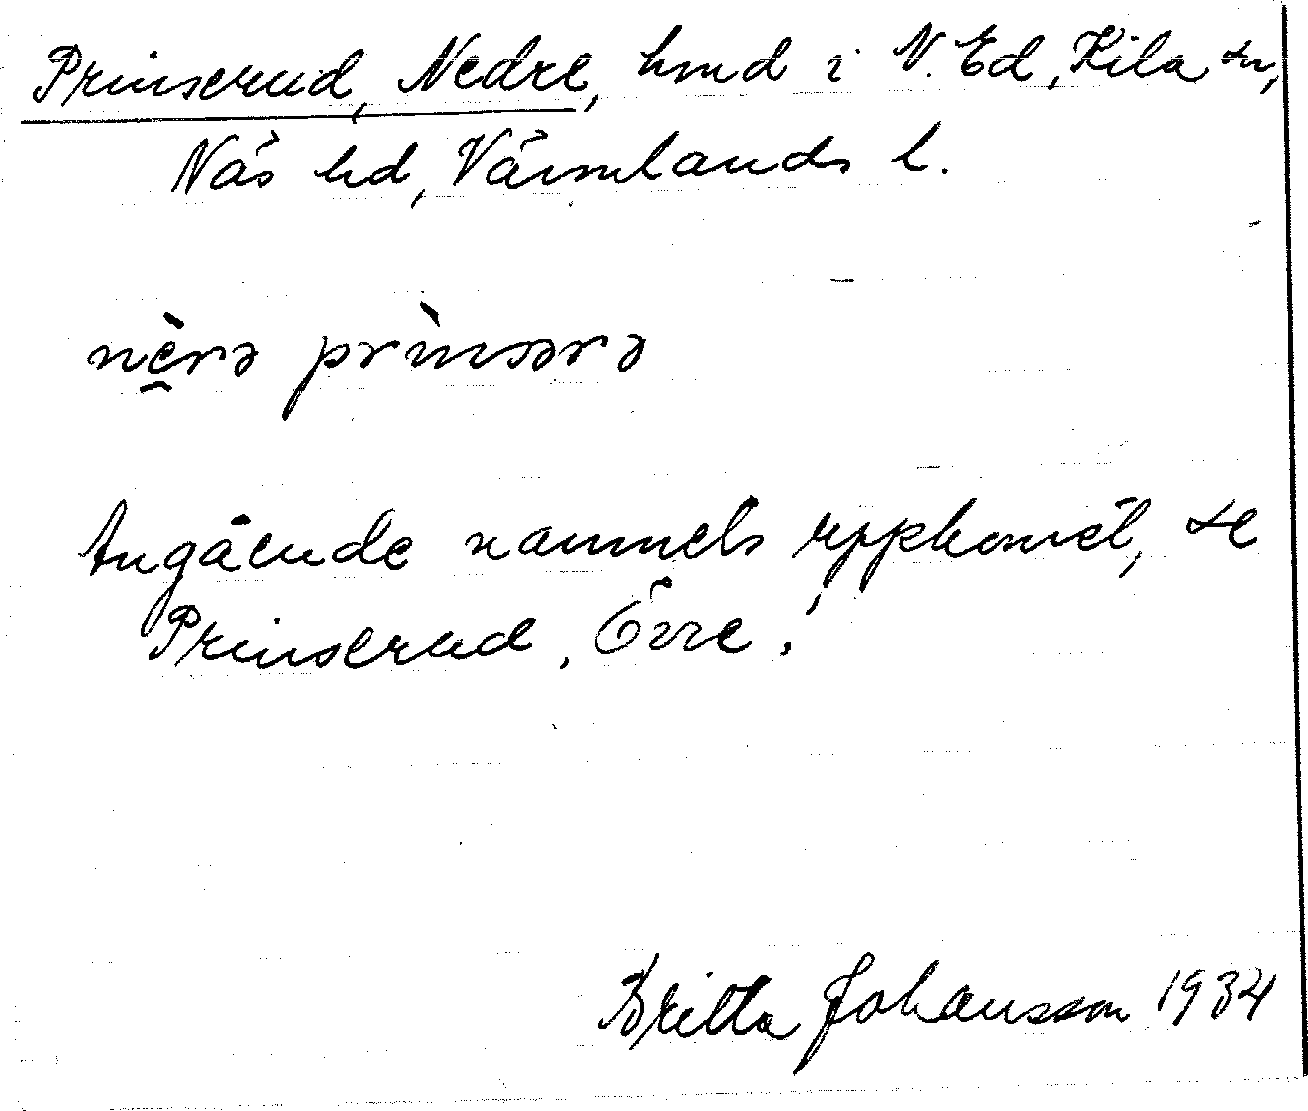 Prinserud, Nedre, hmd i N. Ed, Kila sn,
Näs hd, Värmlands l.
nè̱rə prìnsərə
Angående namnets uppkomst, se
Prinserud, Övre.
Britta Johansson 1934